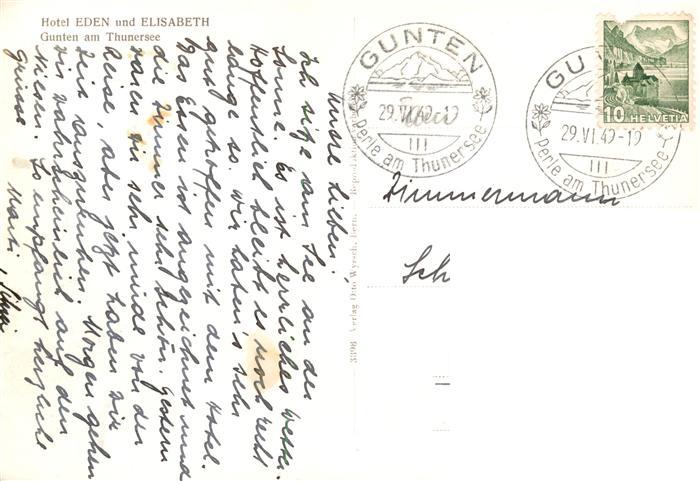 Hotel EDEN und ELISABETH
Gunten am Thunersee
Unsere Lieben,
Ich sitze am See an der
Sonne. Es ist herrliches Wetter.
Hoffentlich bleibt es noch recht
lange so. Wir haben's sehr
gut getroffen mit dem Hotel.
Das Essen ist ausgezeichnet und
die Zimmer sehr schön. Gestern
waren wir sehr müde von der
Reise, aber jetzt haben wir
Zeit auszuruhen. Morgen gehen
wir wahrscheinlich auf den
Niesen. So empfangt herzliche
Grüsse
3398 Verlag Otto Wyrsch, Bern.
GUNTEN
29.VI.49-19
III
Perle am Thunersee
GUN
29.VI.49-19
III
Perle am Thunersee
10 HELVETIA
Zimmermann
Sch